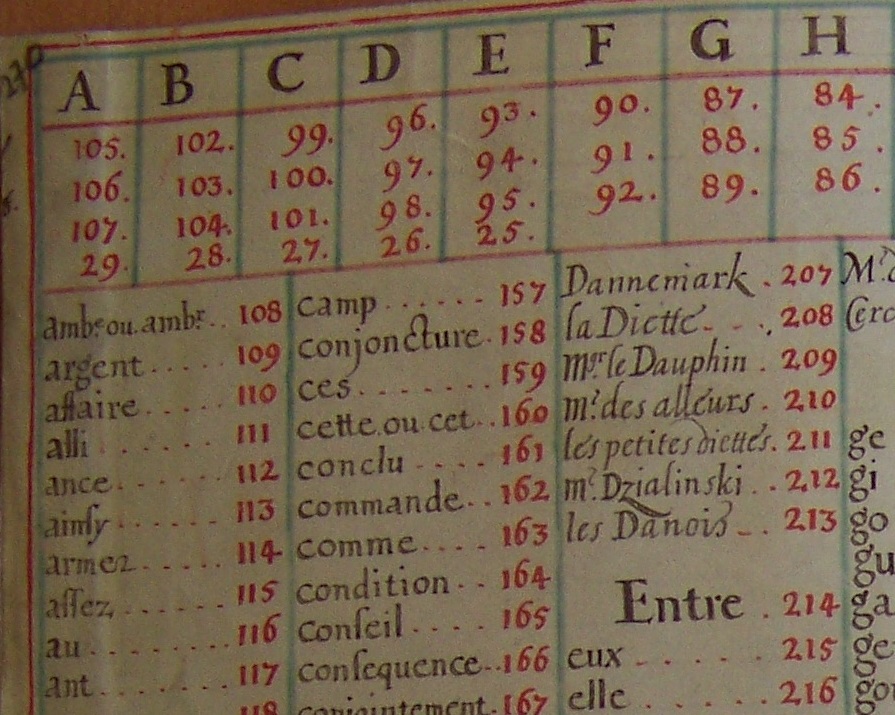 A B C D E F G H
105. 102. 99. 96. 93. 90. 87. 84.
106. 103. 100. 97. 94. 91. 88. 85.
107. 104. 101. 98. 95. 92. 89. 86.
29. 28. 27. 26. 25.
ambr ou ambr. .. 108
argent ..... 109
affaire ..... 110
alli ..... 111
ance ..... 112
ainſy ..... 113
armez ..... 114
aſſez ...... 115
au ........ 116
ant ....... 117
118
camp ...... 157
conjoncture. 158
ces ........ 159
cette.ou.cet.. 160
conclu .... 161
commande.. 162
comme .... 163
condition .. 164
Conſeil .... 165
conſequence.. 166
conjointement. 167
Dannemark . 207
la Diette ... 208
Mgr. le Dauphin . 209
mr. des alleurs . 210
les petites diettes. 211
mr. Dzialinski .. 212
les Danois .. 213
Entre . 214
eux ..... 215
elle ..... 216
ge
gi
go
gu
ga
ge